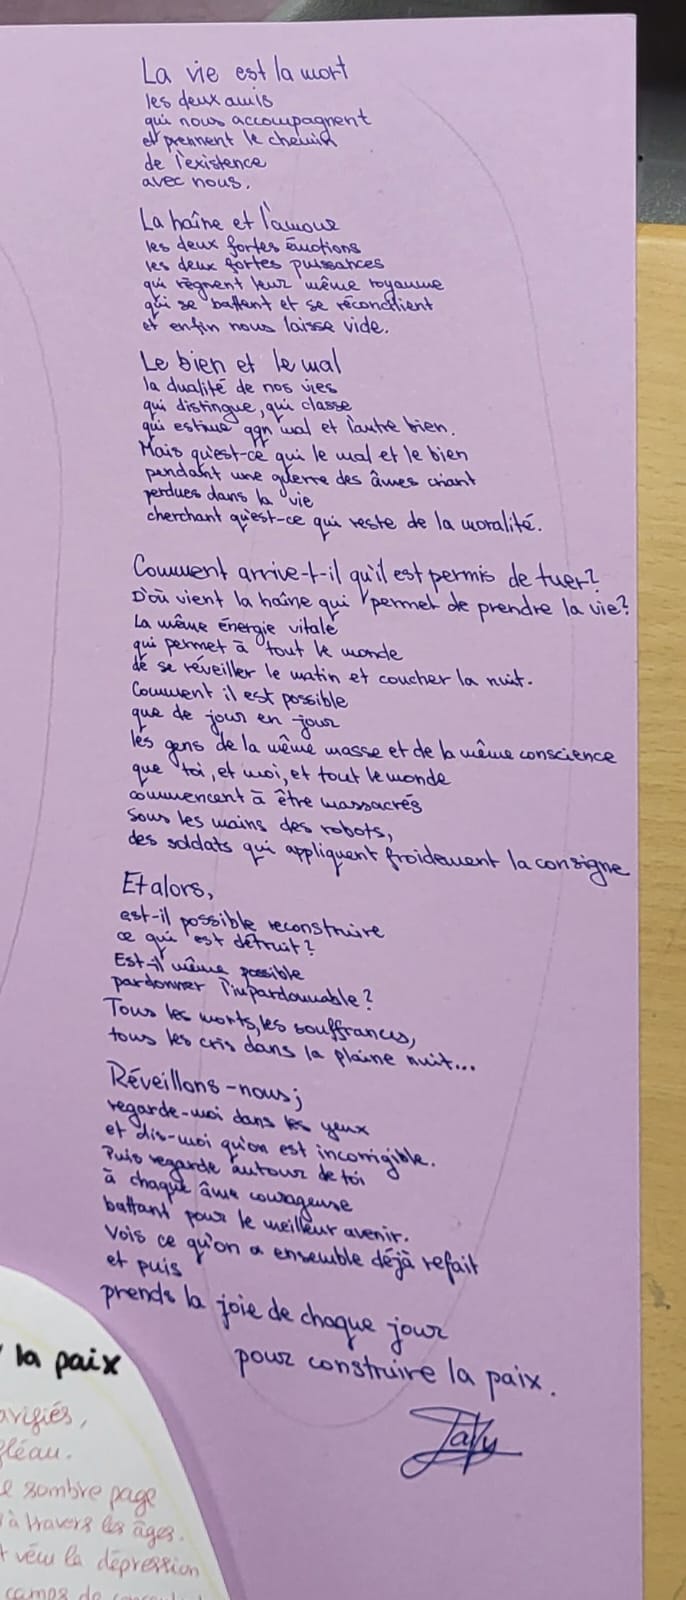 La vie est la mort
les deux amis
qui nous accompagnent
et prennent le chemin
de l'existence
avec nous.
La haîne et l'amour
les deux fortes émotions
les deux fortes puissances
qui règnent leur même royaume
qui se battent et se réconcilient
et enfin nous laisse vide.
Le bien et le mal
la dualité de nos vies
qui distingue, qui classe
qui estime qqn mal et l'autre bien.
Mais qu'est-ce qui le mal et le bien
pendant une guerre des âmes criant
perdues dans la vie
cherchant qu'est-ce qui reste de la moralité.
Comment arrive-t-il qu'il est permis de tuer?
D'où vient la haîne qui permet de prendre la vie?
La même énergie vitale
qui permet à tout le monde
de se réveiller le matin et coucher la nuit.
Comment il est possible
que de jour en jour
les gens de la même masse et de la même conscience
que toi, et moi, et tout le monde
commencent à être massacrés
sous les mains des robots,
des soldats qui appliquent froidement la consigne
Et alors,
est-il possible reconstruire
ce qui est détruit?
Est-il même possible
pardonner l'impardonnable?
Tous les morts, les souffrances,
tous les cris dans la plaine nuit...
Réveillons-nous;
regarde-moi dans les yeux
et dis-moi qu'on est incorrigible.
Puis regarde autour de toi
à chaque âme courageuse
battant pour le meilleur avenir.
Vois ce qu'on a ensemble déjà refait
et puis
prends la joie de chaque jour
pour construire la paix.
la paix
fléau.
sombre page
à travers les âges.
vécu la dépression
camps de